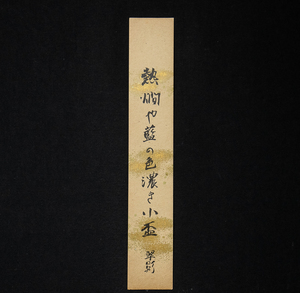 熱燗や藍の色濃き小盃